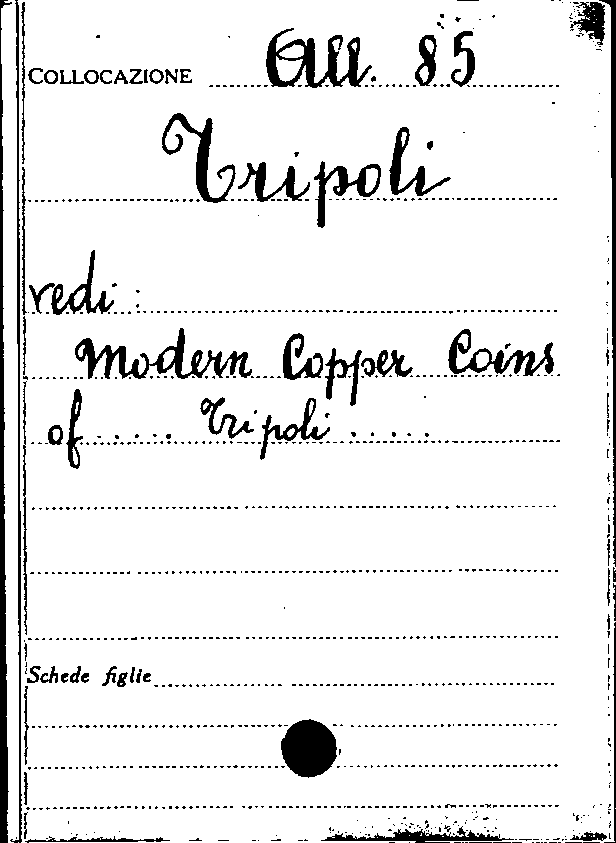 COLLOCAZIONE All. 85
Tripoli
vedi :
Modern Copper Coins
of ..... Tripoli .....
Schede figlie